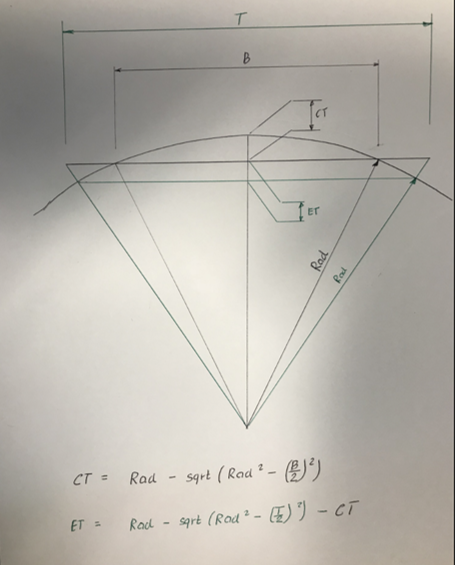 T
B
CT
ET
Rad
Rad
CT = Rad - sqrt (Rad² - (B/2)²)
ET = Rad - sqrt (Rad² - (T/2)²) - CT